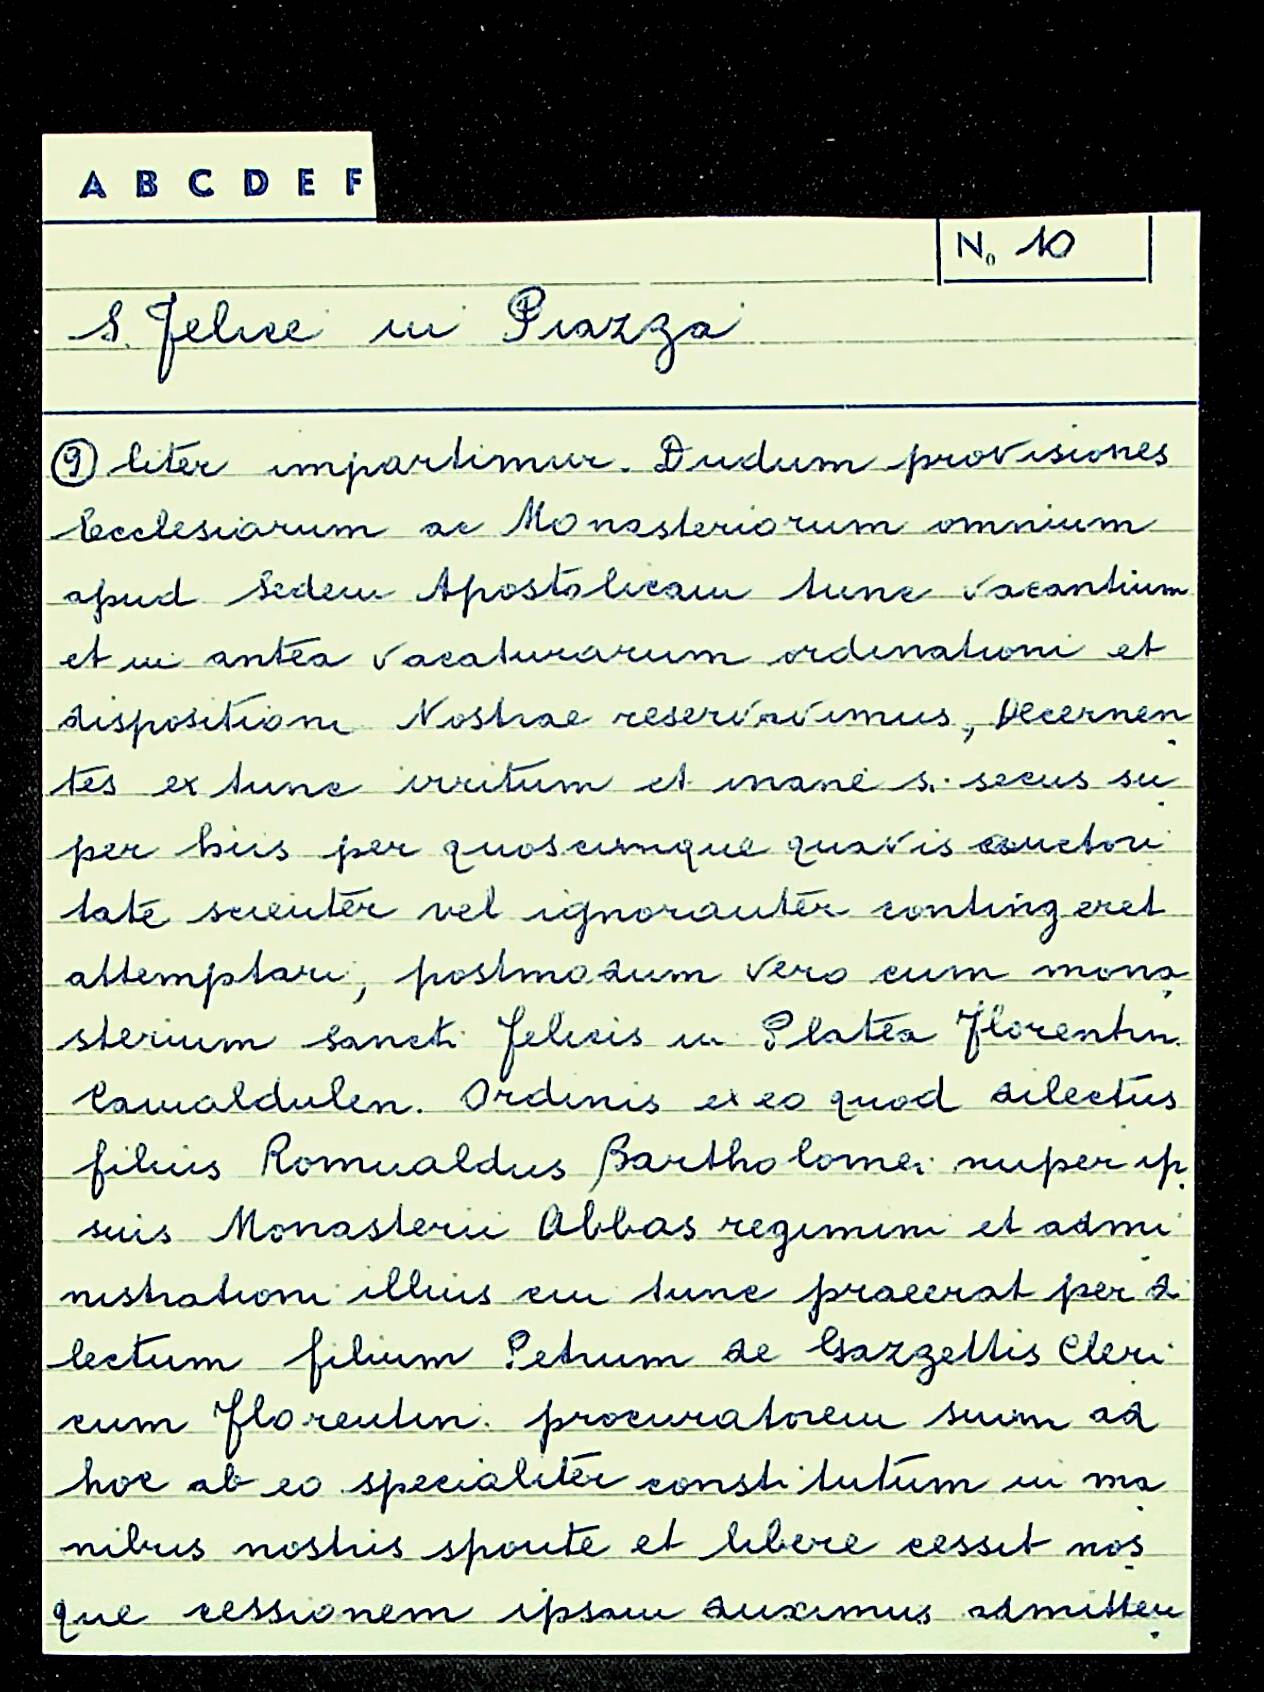 A B C D E F
No 10
S. Felice in Piazza
9) liter impartimur. Dudum provisiones
Ecclesiarum ac Monasteriorum omnium
apud Sedem Apostolicam tunc vacantium
et in antea vacaturarum ordinationi et
dispositioni Nostrae reservavimus, Decernen
tes ex tunc irritum et inane s. secus su
per hiis per quoscumque quavis auctori
tate scienter vel ignoranter contingeret
attemptari, postmodum vero cum mona
sterium Sancti Felicis in Platea Florentin.
Camaldulen. Ordinis ex eo quod dilectus
filius Romualdus Bartholomei nuper ip
sius Monasterii Abbas regimini et admi
nistrationi illius cui tunc praeerat per di
lectum filium Petrum de Gazzettis Cleri
cum Florentin. procuratorem suum ad
hoc ab eo specialiter constitutum in ma
nibus nostris sponte et libere cessit nos
que cessionem ipsam duximus admitten